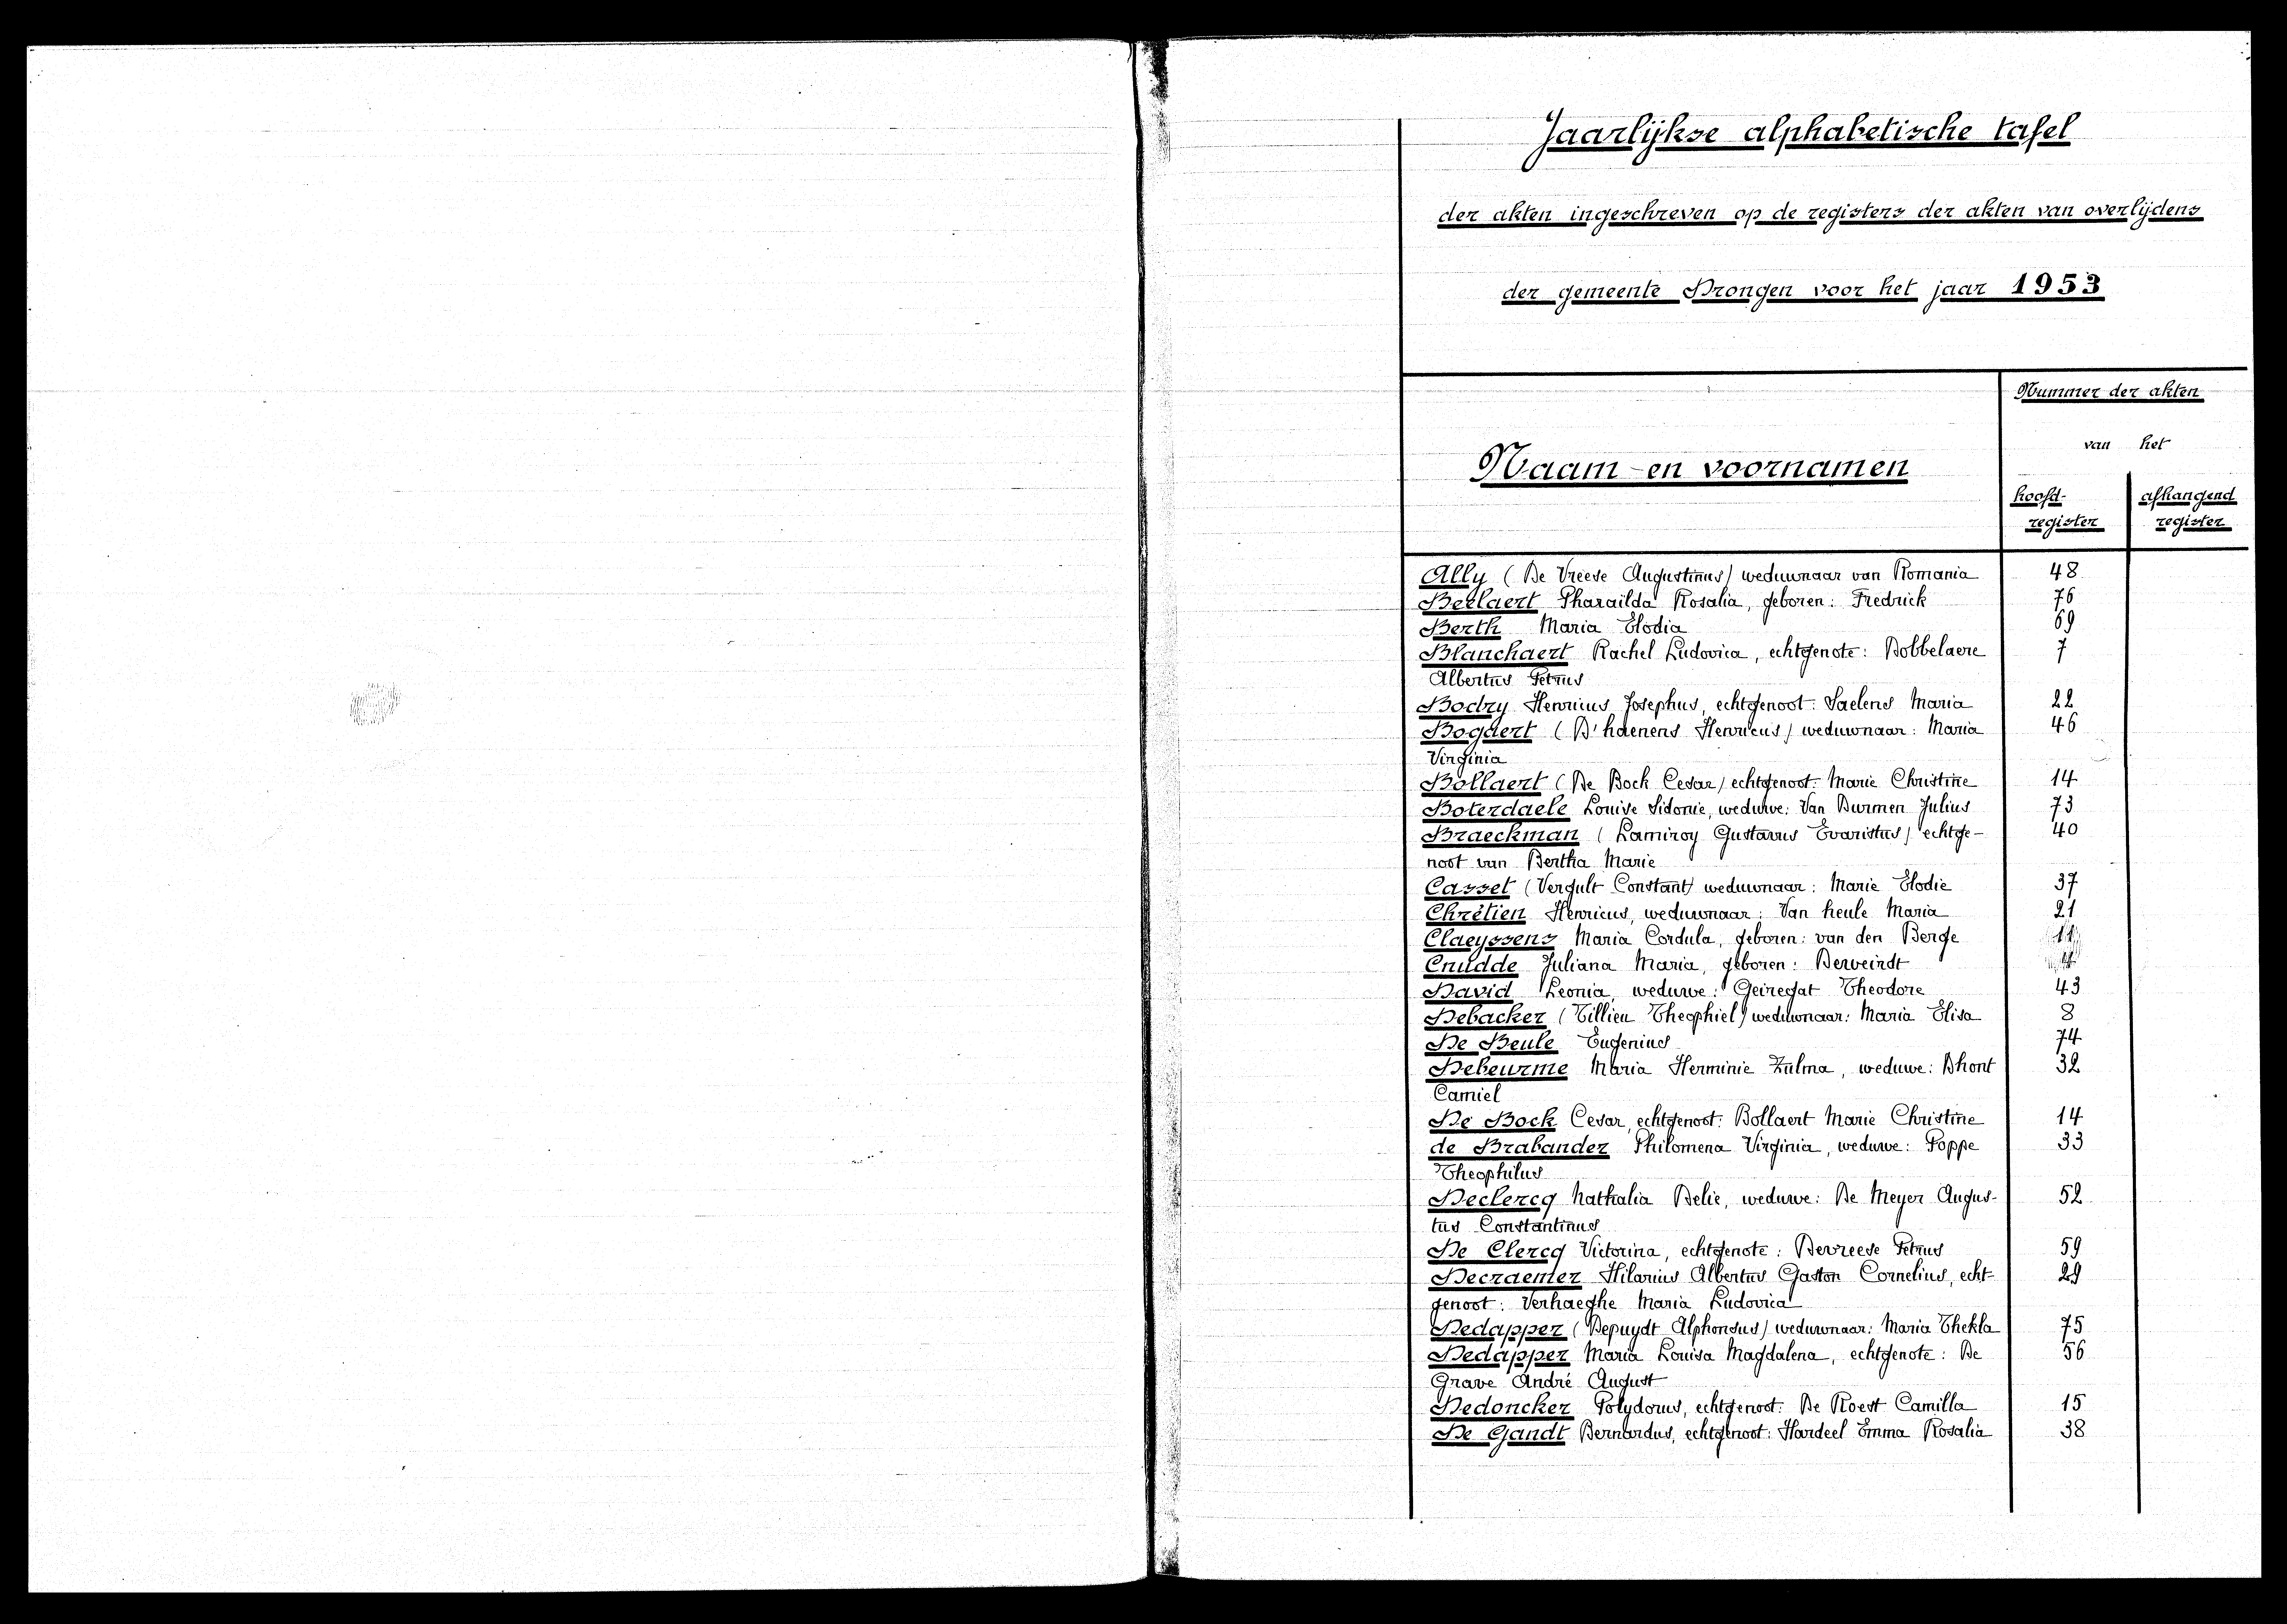 Jaarlijkse alphabetische tafel
der akten ingeschreven op de registers der akten van overlijdens
der gemeente Drongen voor het jaar 1953
Naam- en voornamen
Nummer der akten
van het
hoofd-
register
afhangend
register
Ally (De Vreese Augustinus) weduwnaar van Romania 48
Beelaert Pharaïlda Rosalia, geboren: Fredrick 76
Berth Maria Elodia 69
Blanchaert Rachel Ludovica, echtgenote: Dobbelaere 7
Albertus Petrus
Bodry Henricus Josephus, echtgenoot: Saelens Maria 22
Bogaert (D'haenens Henricus) weduwnaar: Maria 46
Virginia
Bollaert (De Bock Cesar) echtgenoot: Marie Christine 14
Boterdaele Louise Sidonie, weduwe: Van Durmen Julius 73
Braeckman (Lamiroy Gustavus Evaristus) echtge- 40
noot van Bertha Marie
Casset (Vergult Constant) weduwnaar: Marie Elodie 37
Chrétien Henricus, weduwnaar: Van heule Maria 21
Claeyssens Maria Cordula, geboren: van den Berge 11
Cnudde Juliana Maria, geboren: Derveindt
David Leonia, weduwe: Geiregat Theodore 43
Debacker (Tillieu Theophiel) weduwnaar: Maria Elisa 8
De Beule Eugenius 74
Debeurme Maria Herminie Zulma, weduwe: Dhont 32
Camiel
De Bock Cesar, echtgenoot: Bollaert Marie Christine 14
de Brabander Philomena Virginia, weduwe: Poppe 33
Theophilus
Declercq Nathalia Delie, weduwe: De Meyer Augus- 52
tus Constantinus
De Clercq Victorina, echtgenote: Devreese Petrus 59
Decraemer Hilarius Albertus Gaston Cornelius, echt- 29
genoot: Verhaeghe Maria Ludovica
Dedapper (Depuydt Alphonsus) weduwnaar: Maria Thekla 75
Dedapper Maria Louisa Magdalena, echtgenote: De 56
Grave André August
Dedoncker Polydorus, echtgenoot: De Roest Camilla 15
De Gandt Bernardus, echtgenoot: Hardeel Emma Rosalia 38